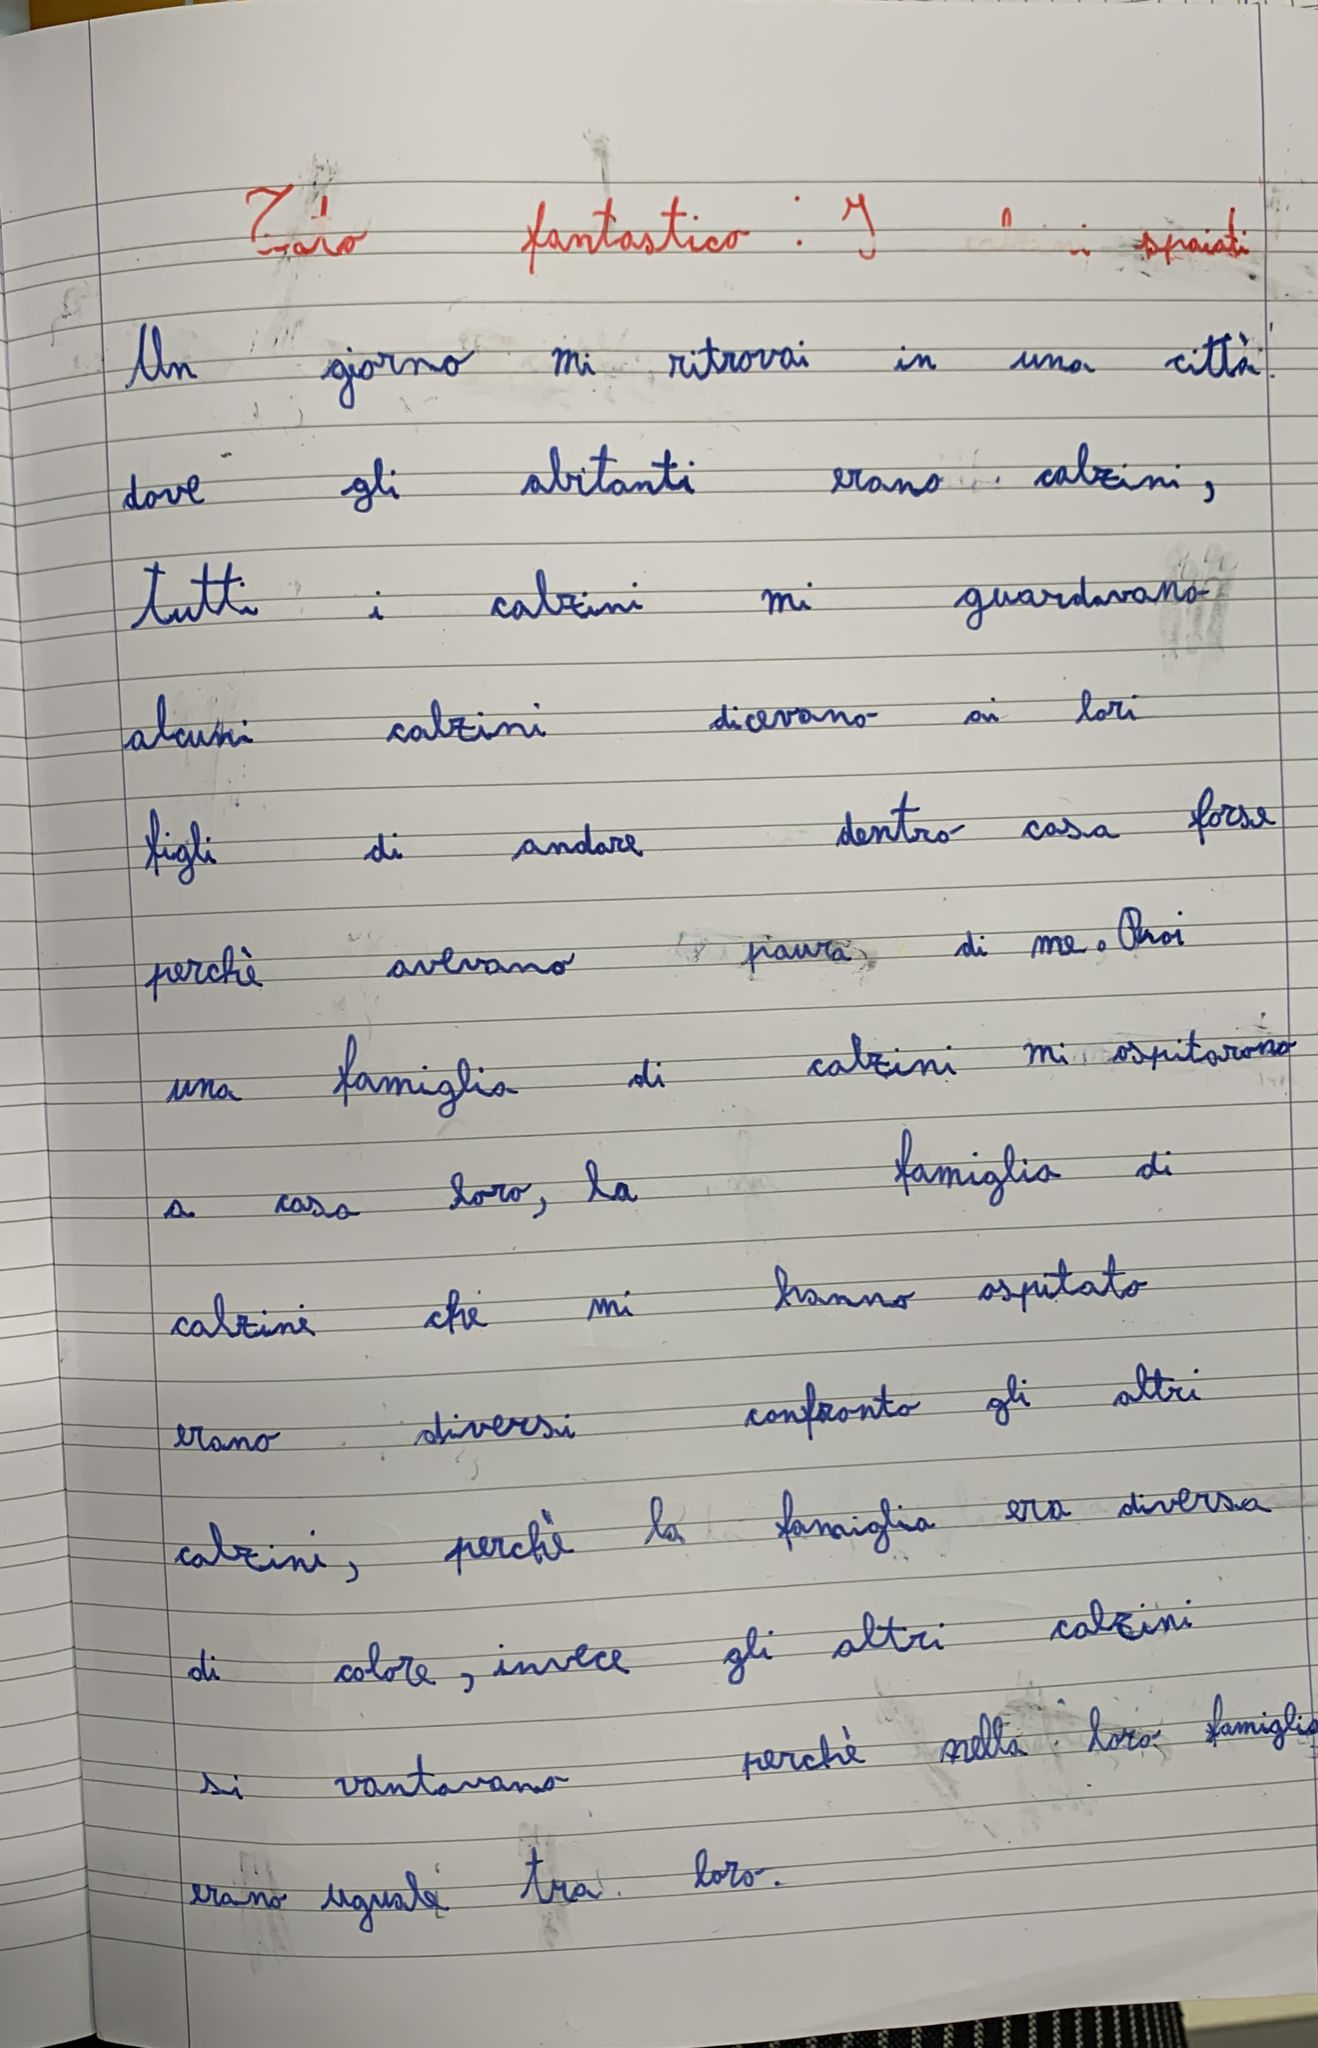 fantastico : I calzini spaiati
Un giorno mi ritrovai in una città
dove gli abitanti erano calzini,
tutti i calzini mi guardavano
alcuni calzini dicevano ai lori
figli di andare dentro casa forse
perchè avevano paura di me. Poi
una famiglia di calzini mi ospitarono
a casa loro, la famiglia di
calzini che mi hanno ospitato
erano diversi confronto gli altri
calzini, perchè la famiglia era diversa
di colore, invece gli altri calzini
si vantavano perchè nella loro famiglia
erano uguale tra loro.